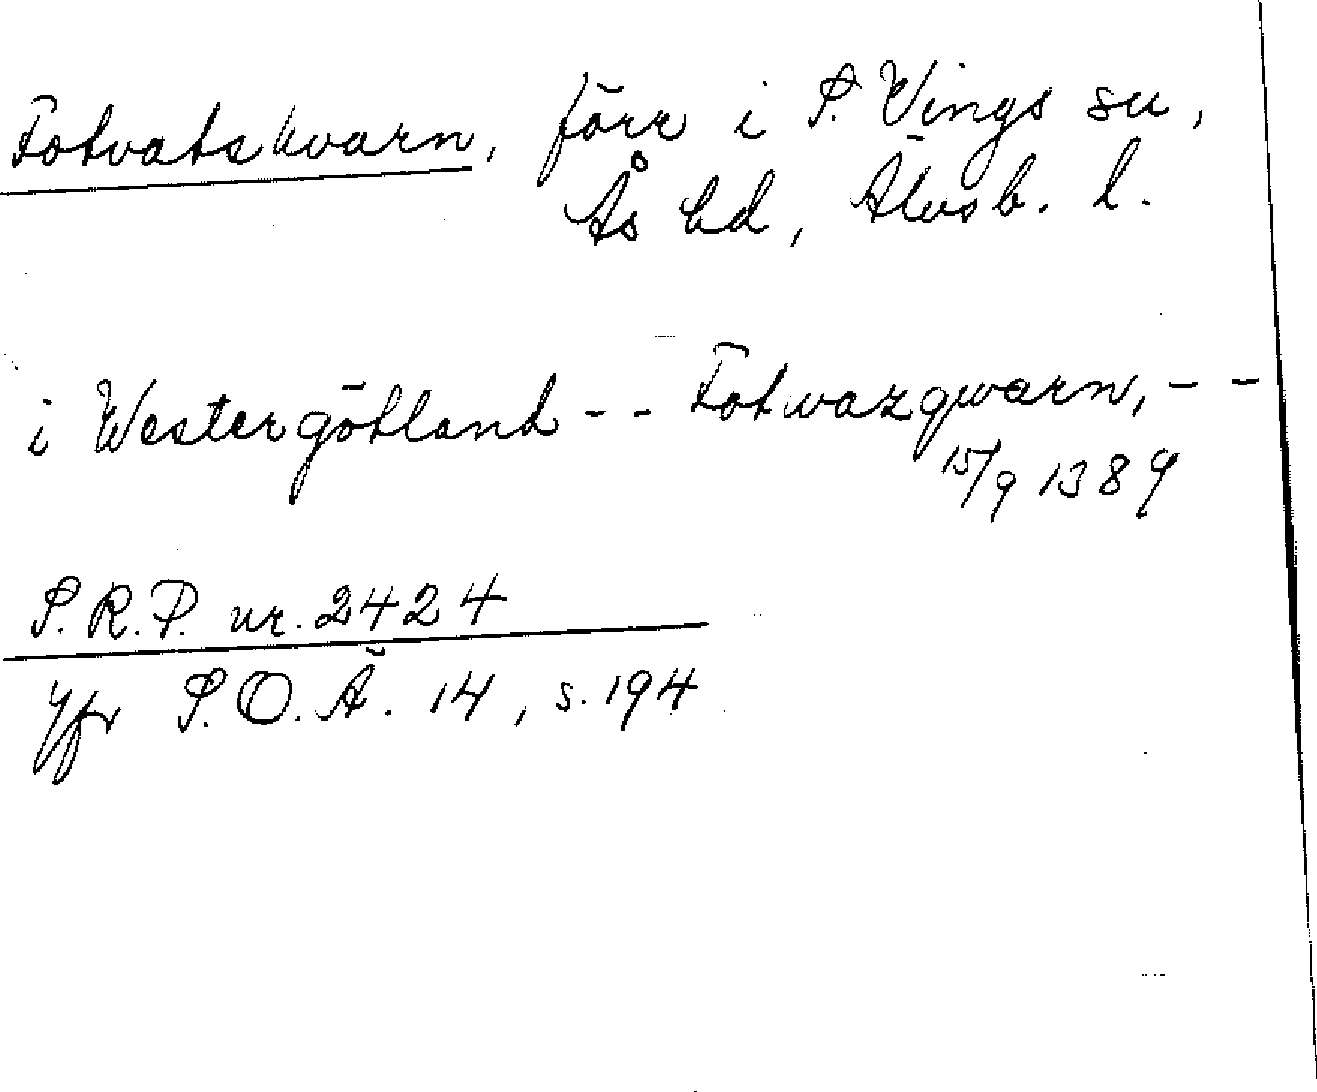 Fotvatskvarn, förr i S. Vings sn,
Ås hd, Älvsb. l.
i Westergötland -- Fotwazqwarn, --
15/9 1389
S.R.P. nr. 2424
Jfr S.O.Ä. 14, s. 194